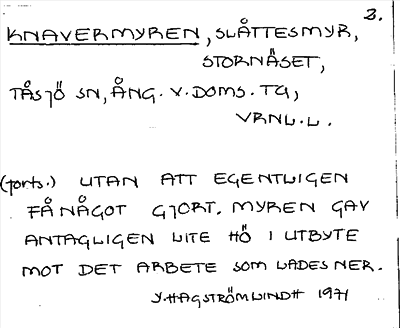 2.
KNAVERMYREN, SLÅTTESMYR,
STORNÄSET,
TÅSJÖ SN, ÅNG. V. DOMS. TG,
VRNL.L.
(forts.) UTAN ATT EGENTLIGEN
FÅ NÅGOT GJORT. MYREN GAV
ANTAGLIGEN LITE HÖ I UTBYTE
MOT DET ARBETE SOM LADES NER.
Y. HAGSTRÖM LINDH 1971